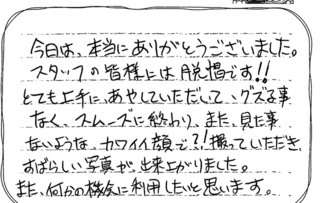 今日は、本当にありがとうございました。
スタッフの皆様には脱帽です!!
とても上手に、あやしていただいて、グズる事
なく、スムーズに終わり、また、見た事
ないような、カワイイ顔で?!撮っていただき、
すばらしい写真が、出来上がりました。
また、何かの機会に利用したいと思います。